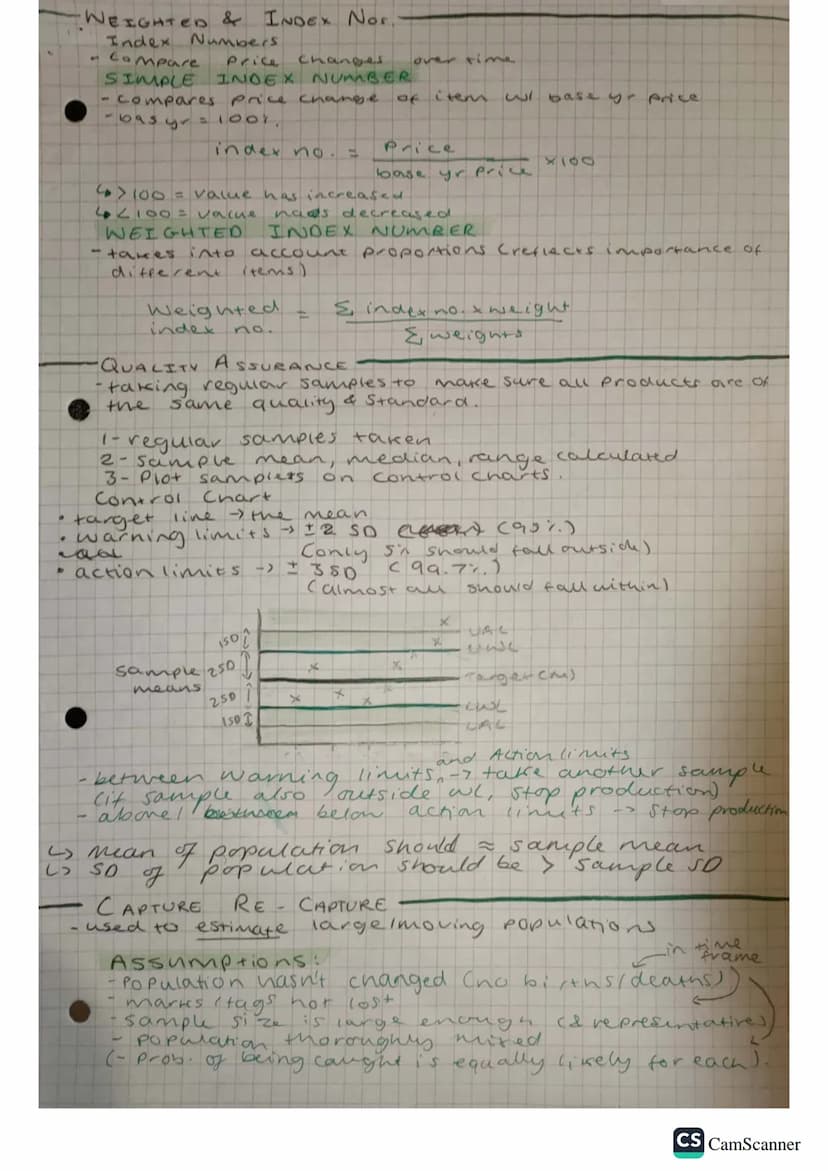 WEIGHTED & INDEX Nos.
Index Numbers
- compare price changes over time
SIMPLE INDEX NUMBER
- compares price change of item w/ base yr price
- bas yr = 100%.
index no. = Price / base yr price × 100
↳ >100 = value has increased
↳ <100 = value decreased
WEIGHTED INDEX NUMBER
- takes into account proportions (reflects importance of
different items)
Weighted index no. = Σ index no. × weight / Σ weights
QUALITY ASSURANCE
- taking regular samples to make sure all products are of
the same quality & standard.
1 - regular samples taken
2 - sample mean, median, range calculated
3 - Plot samplets on control charts.
Control Chart
• target line → the mean
• warning limits → ± 2 SD (95%)
(only 5% should fall outside)
• action limits -> ± 3SD (99.7%)
(almost all should fall within)
UAL
1SD
UWL
sample means
2SD
Target (m)
2SD
LWL
1SD
LAL
- between warning limits, and Action limits -> take another sample
(if sample also outside WL, stop production)
- above / below action limits -> stop production
↳ mean of population should ≈ sample mean
↳ SD of population should be > sample SD
CAPTURE RE - CAPTURE
- used to estimate large/moving populations
in time frame
ASSUMPTIONS:
- Population hasn't changed (no births/deaths)
- marks/tags not lost
- sample size is large enough (& representative)
- population thoroughly mixed
(- prob. of being caught is equally likely for each).
CS CamScanner